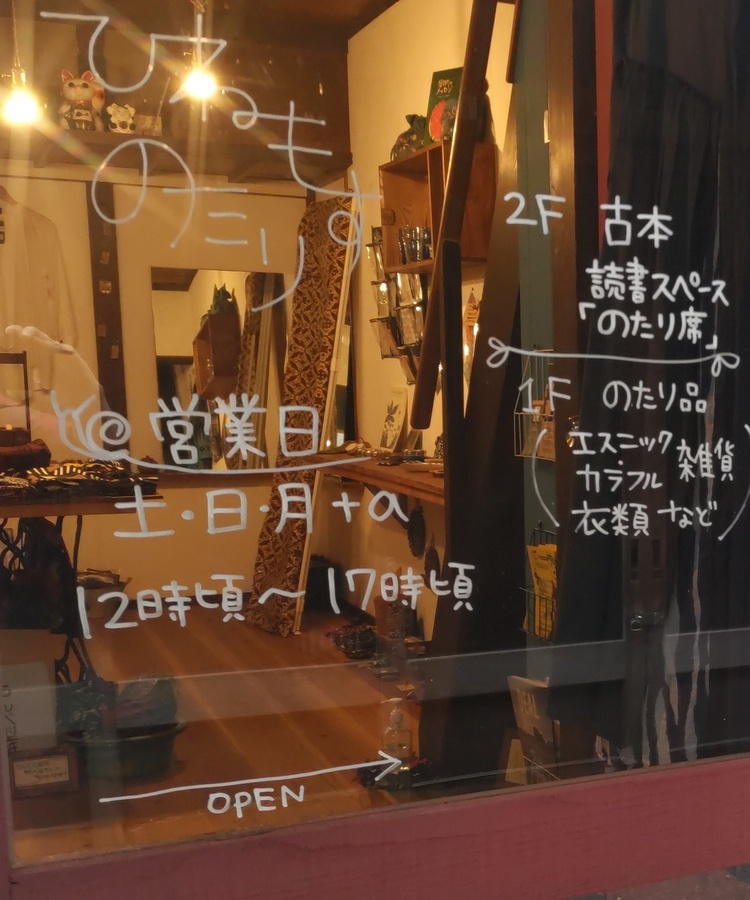 ひねもす
のたり
営業日
土・日・月+α
12時頃～17時頃
OPEN
2F 古本
読書スペース
「のたり席」
1F のたり品
(エスニック
カラフル 雑貨
衣類 など)